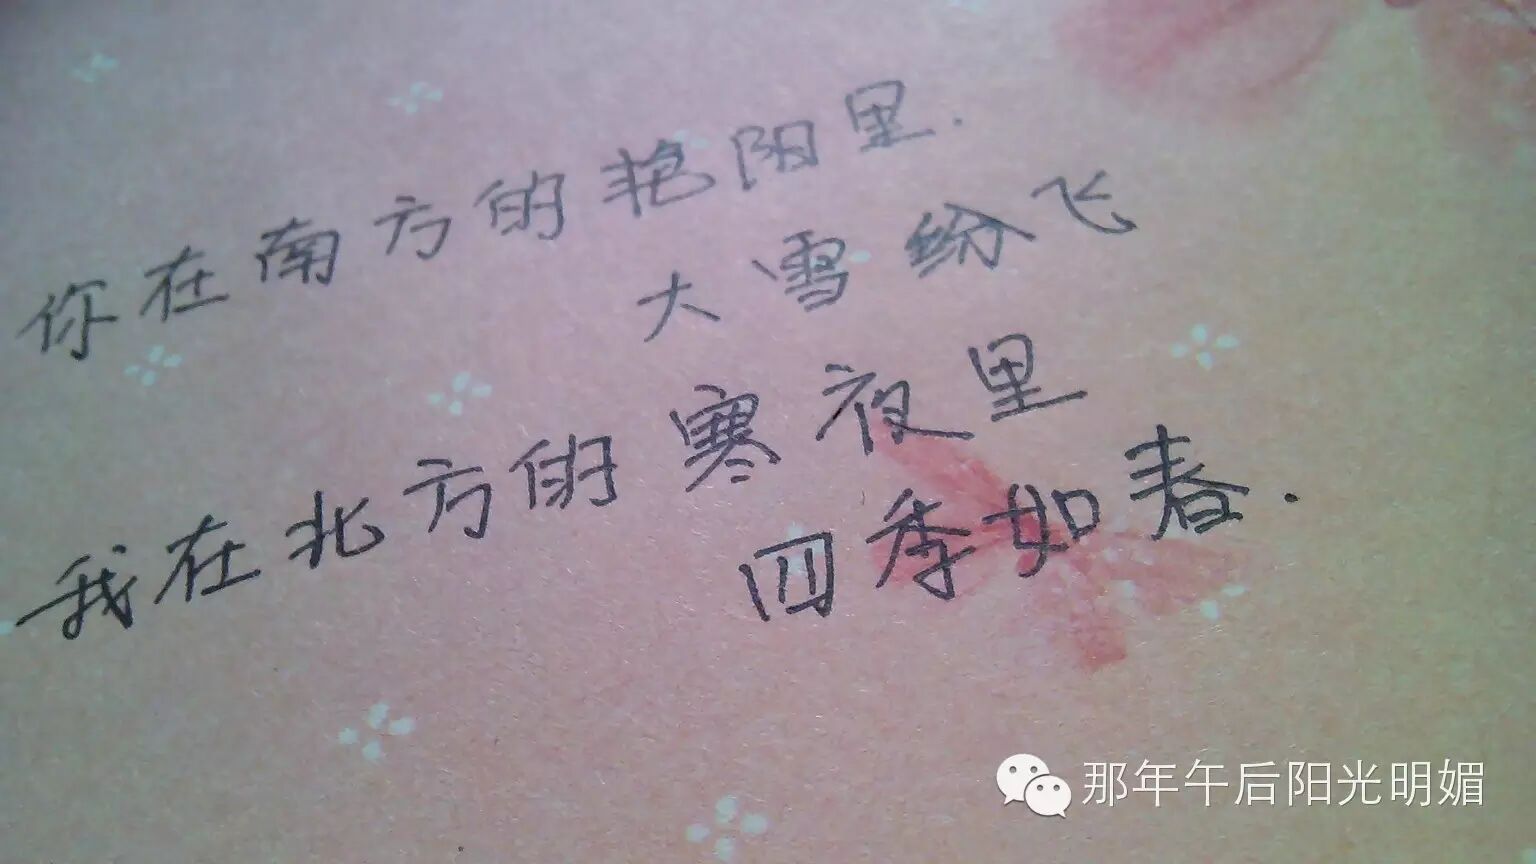 你在南方的艳阳里.
大雪纷飞
我在北方的寒夜里
四季如春.
那年午后阳光明媚